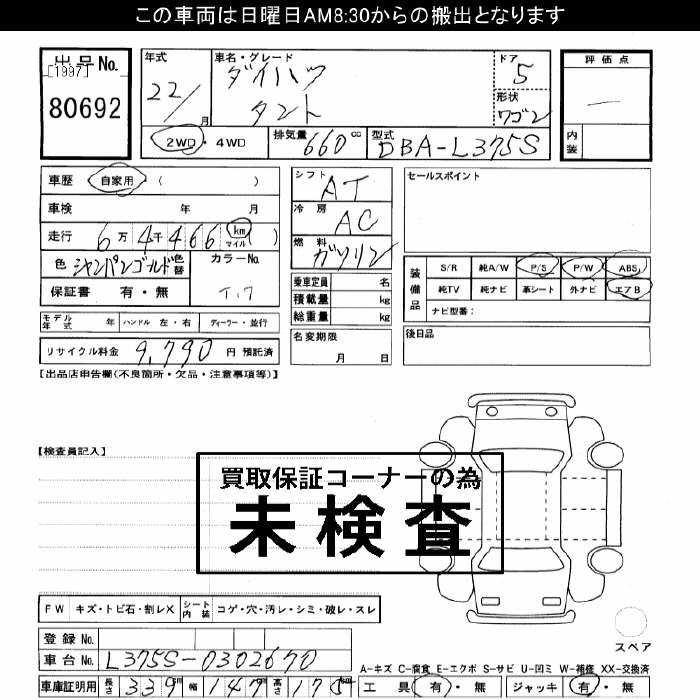 この車両は日曜日AM8:30からの搬出となります
出品No.
[1997]
80692
年式
22/
月
車名・グレード
ダイハツ
タント
ドア
5
形状
ワゴン
評価点
―
内装
2WD・4WD
排気量
660
cc
型式
DBA-L375S
車歴
自家用
(
)
車検
年
月
走行
6万4千466
km
マイル
(
)
色
シャンパンゴールド
色替
カラーNo.
T.17
保証書
有・無
シフト
AT
冷房
AC
燃料
ガソリン
乗車定員
名
積載量
kg
総重量
kg
セールスポイント
装備品
S/R
純A/W
P/S
P/W
ABS
純TV
純ナビ
革シート
外ナビ
エアB
ナビ型番:
モデル年式
年
ハンドル
左・右
ディーラー・並行
リサイクル料金
9,790
円 預託済
名変期限
月
日
後日品
【出品店申告欄(不良箇所・欠品・注意事項等)】
【検査員記入】
買取保証コーナーの為
未検査
FW
キズ・トビ石・割レX
シート内装
コゲ・穴・汚レ・シミ・破レ・スレ
登録No.
車台No.
L375S-0302670
スペア
A-キズ C-腐食 E-エクボ S-サビ U-凹ミ W-補修 XX-交換済
車庫証明用
長さ
339
幅
147
高さ
175
工具
有・無
ジャッキ
有・無